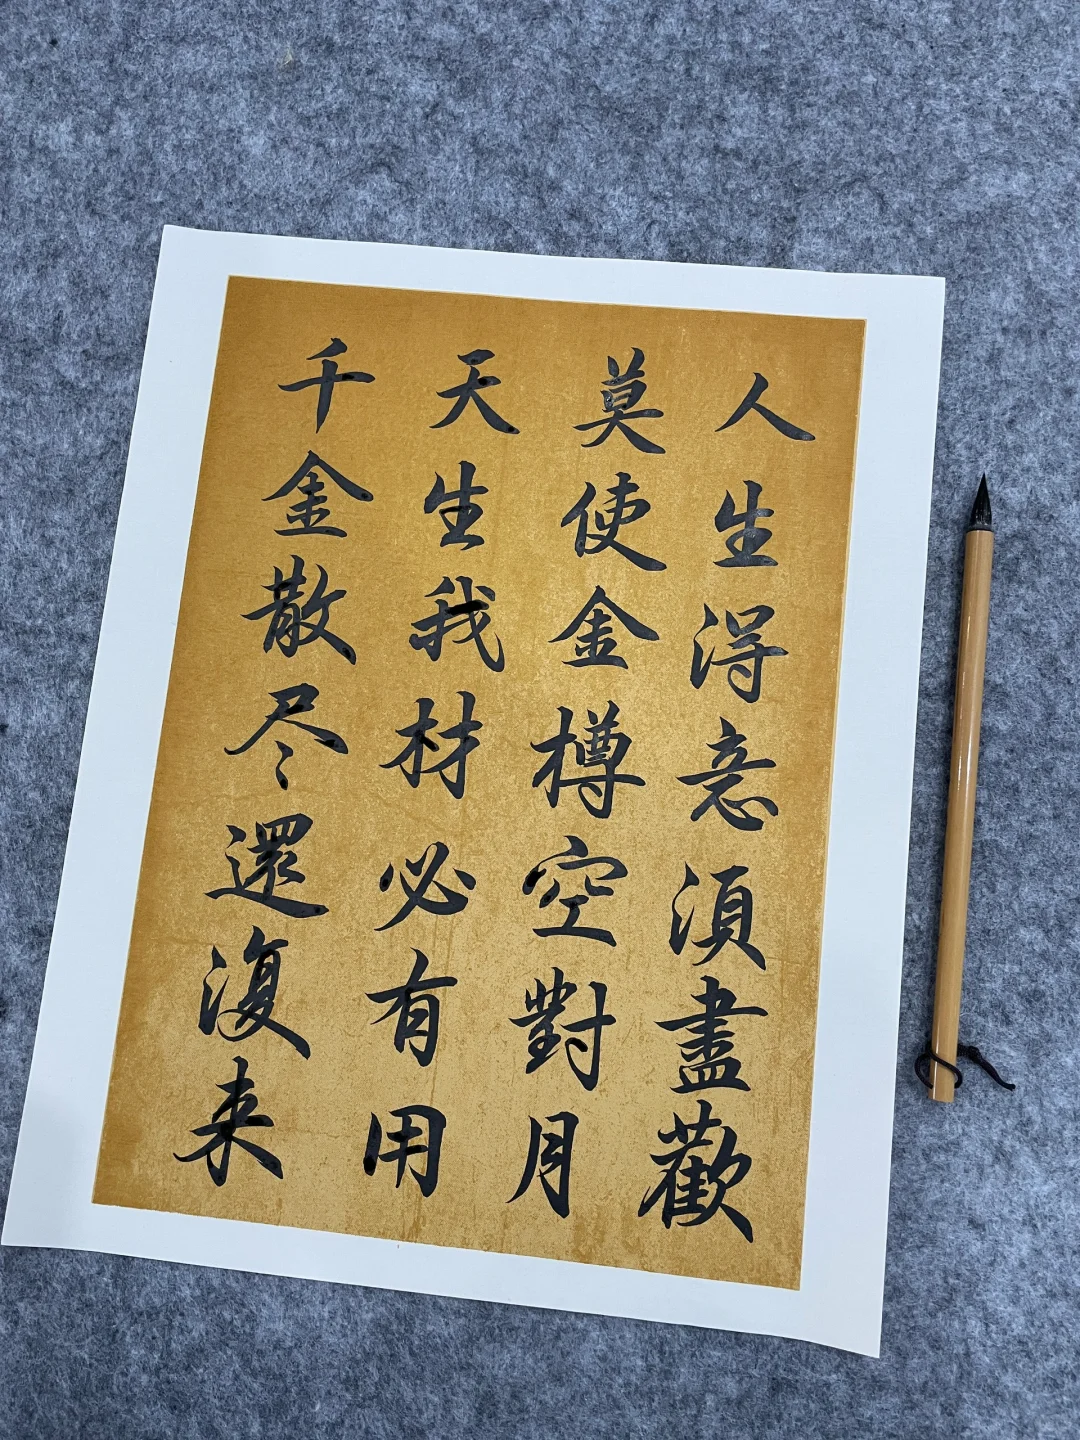 人生得意須盡歡
莫使金樽空對月
天生我材必有用
千金散尽還復来